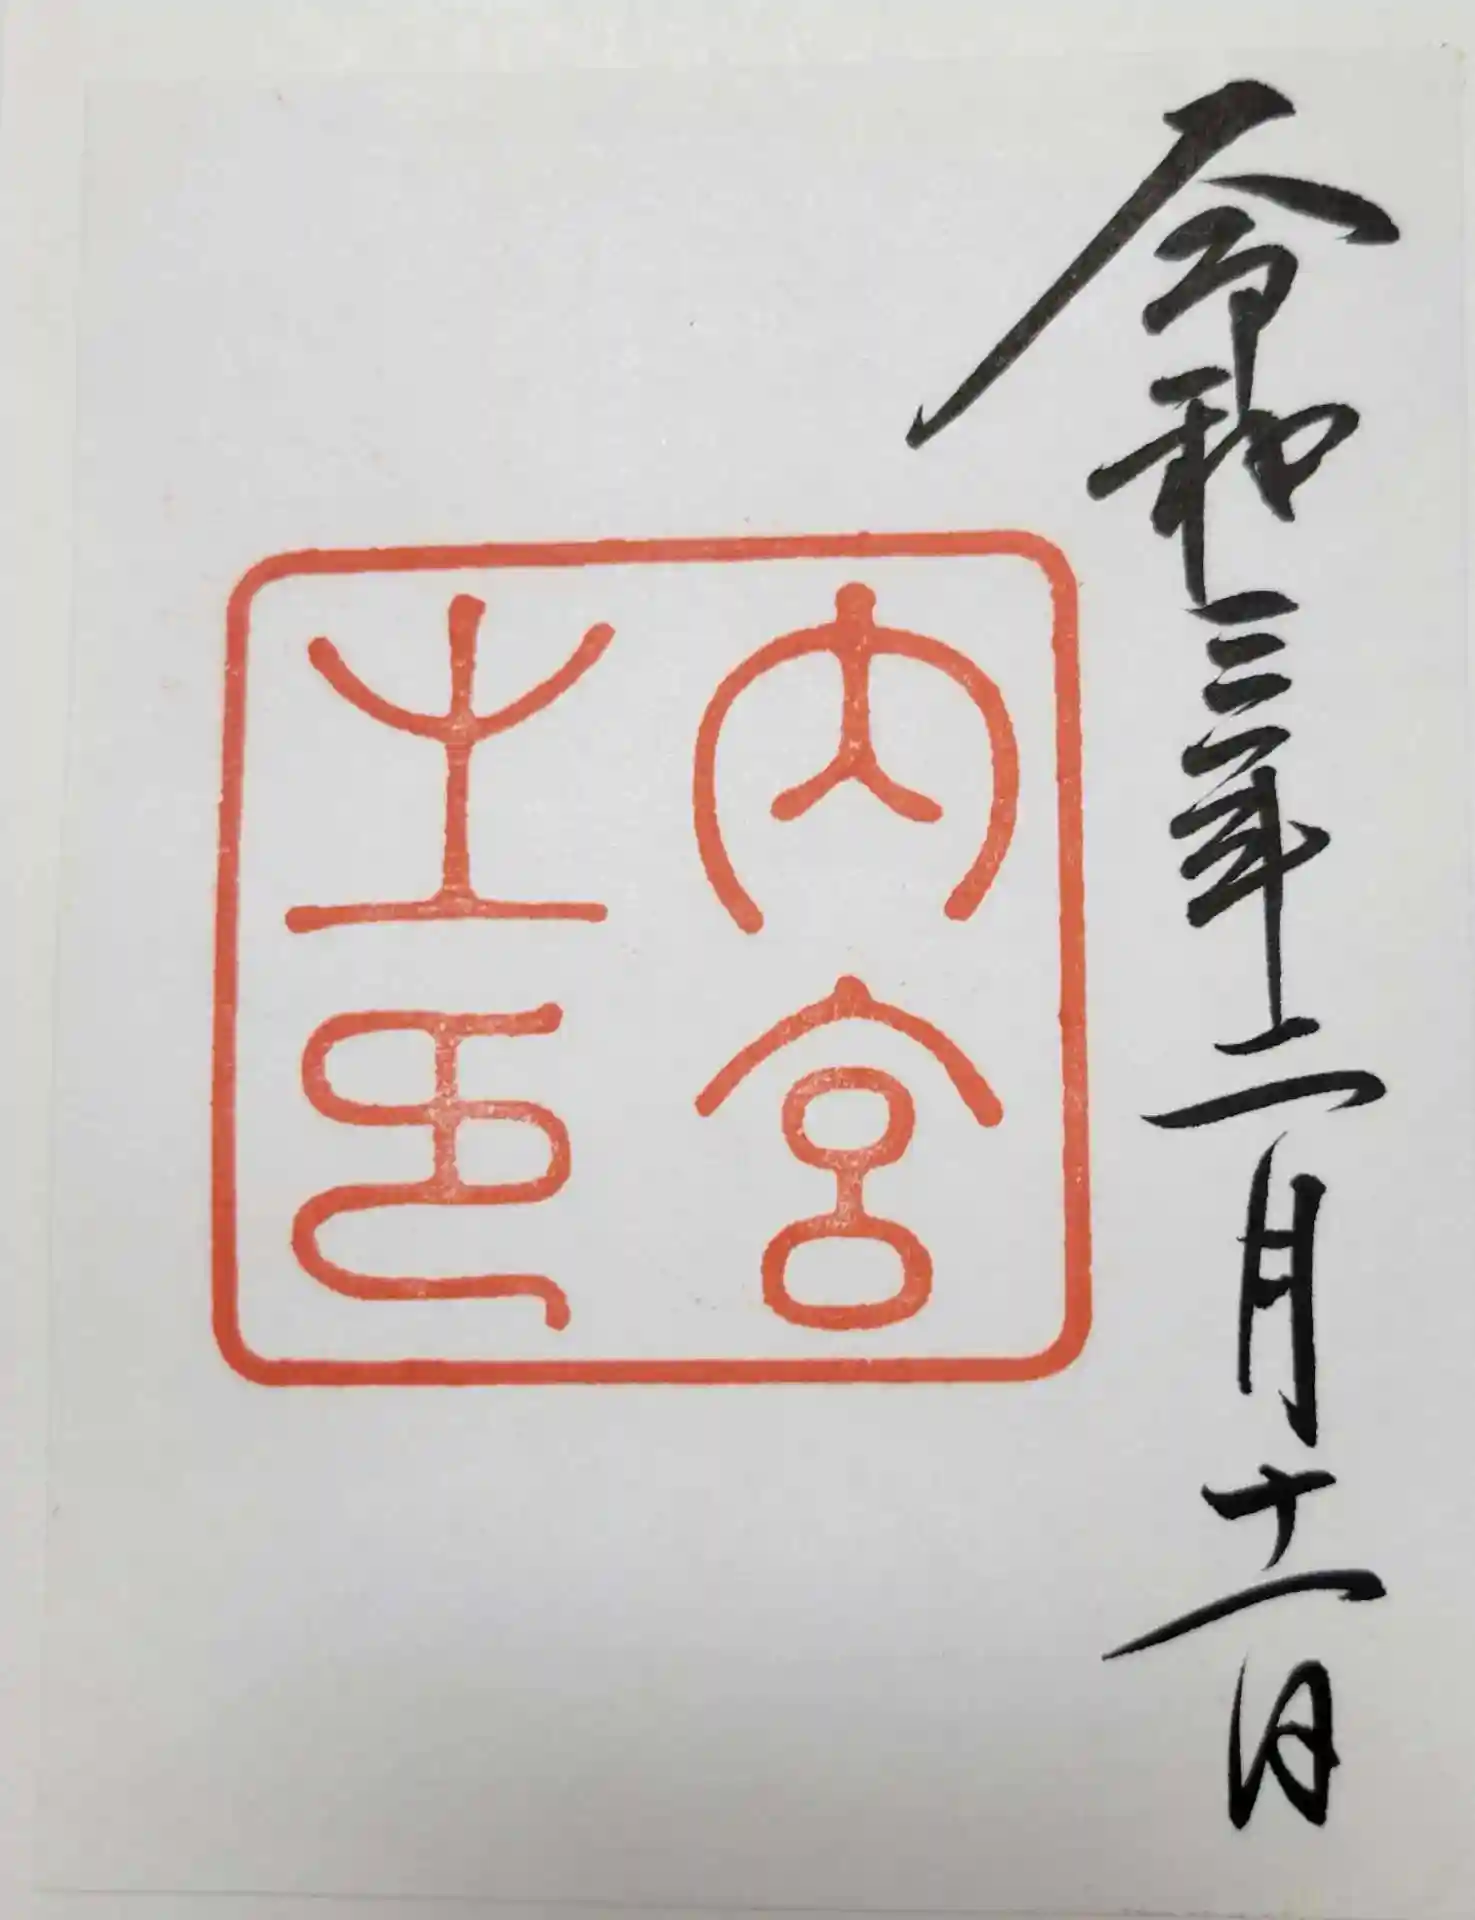 令和三年二月十一日
内宮
之印